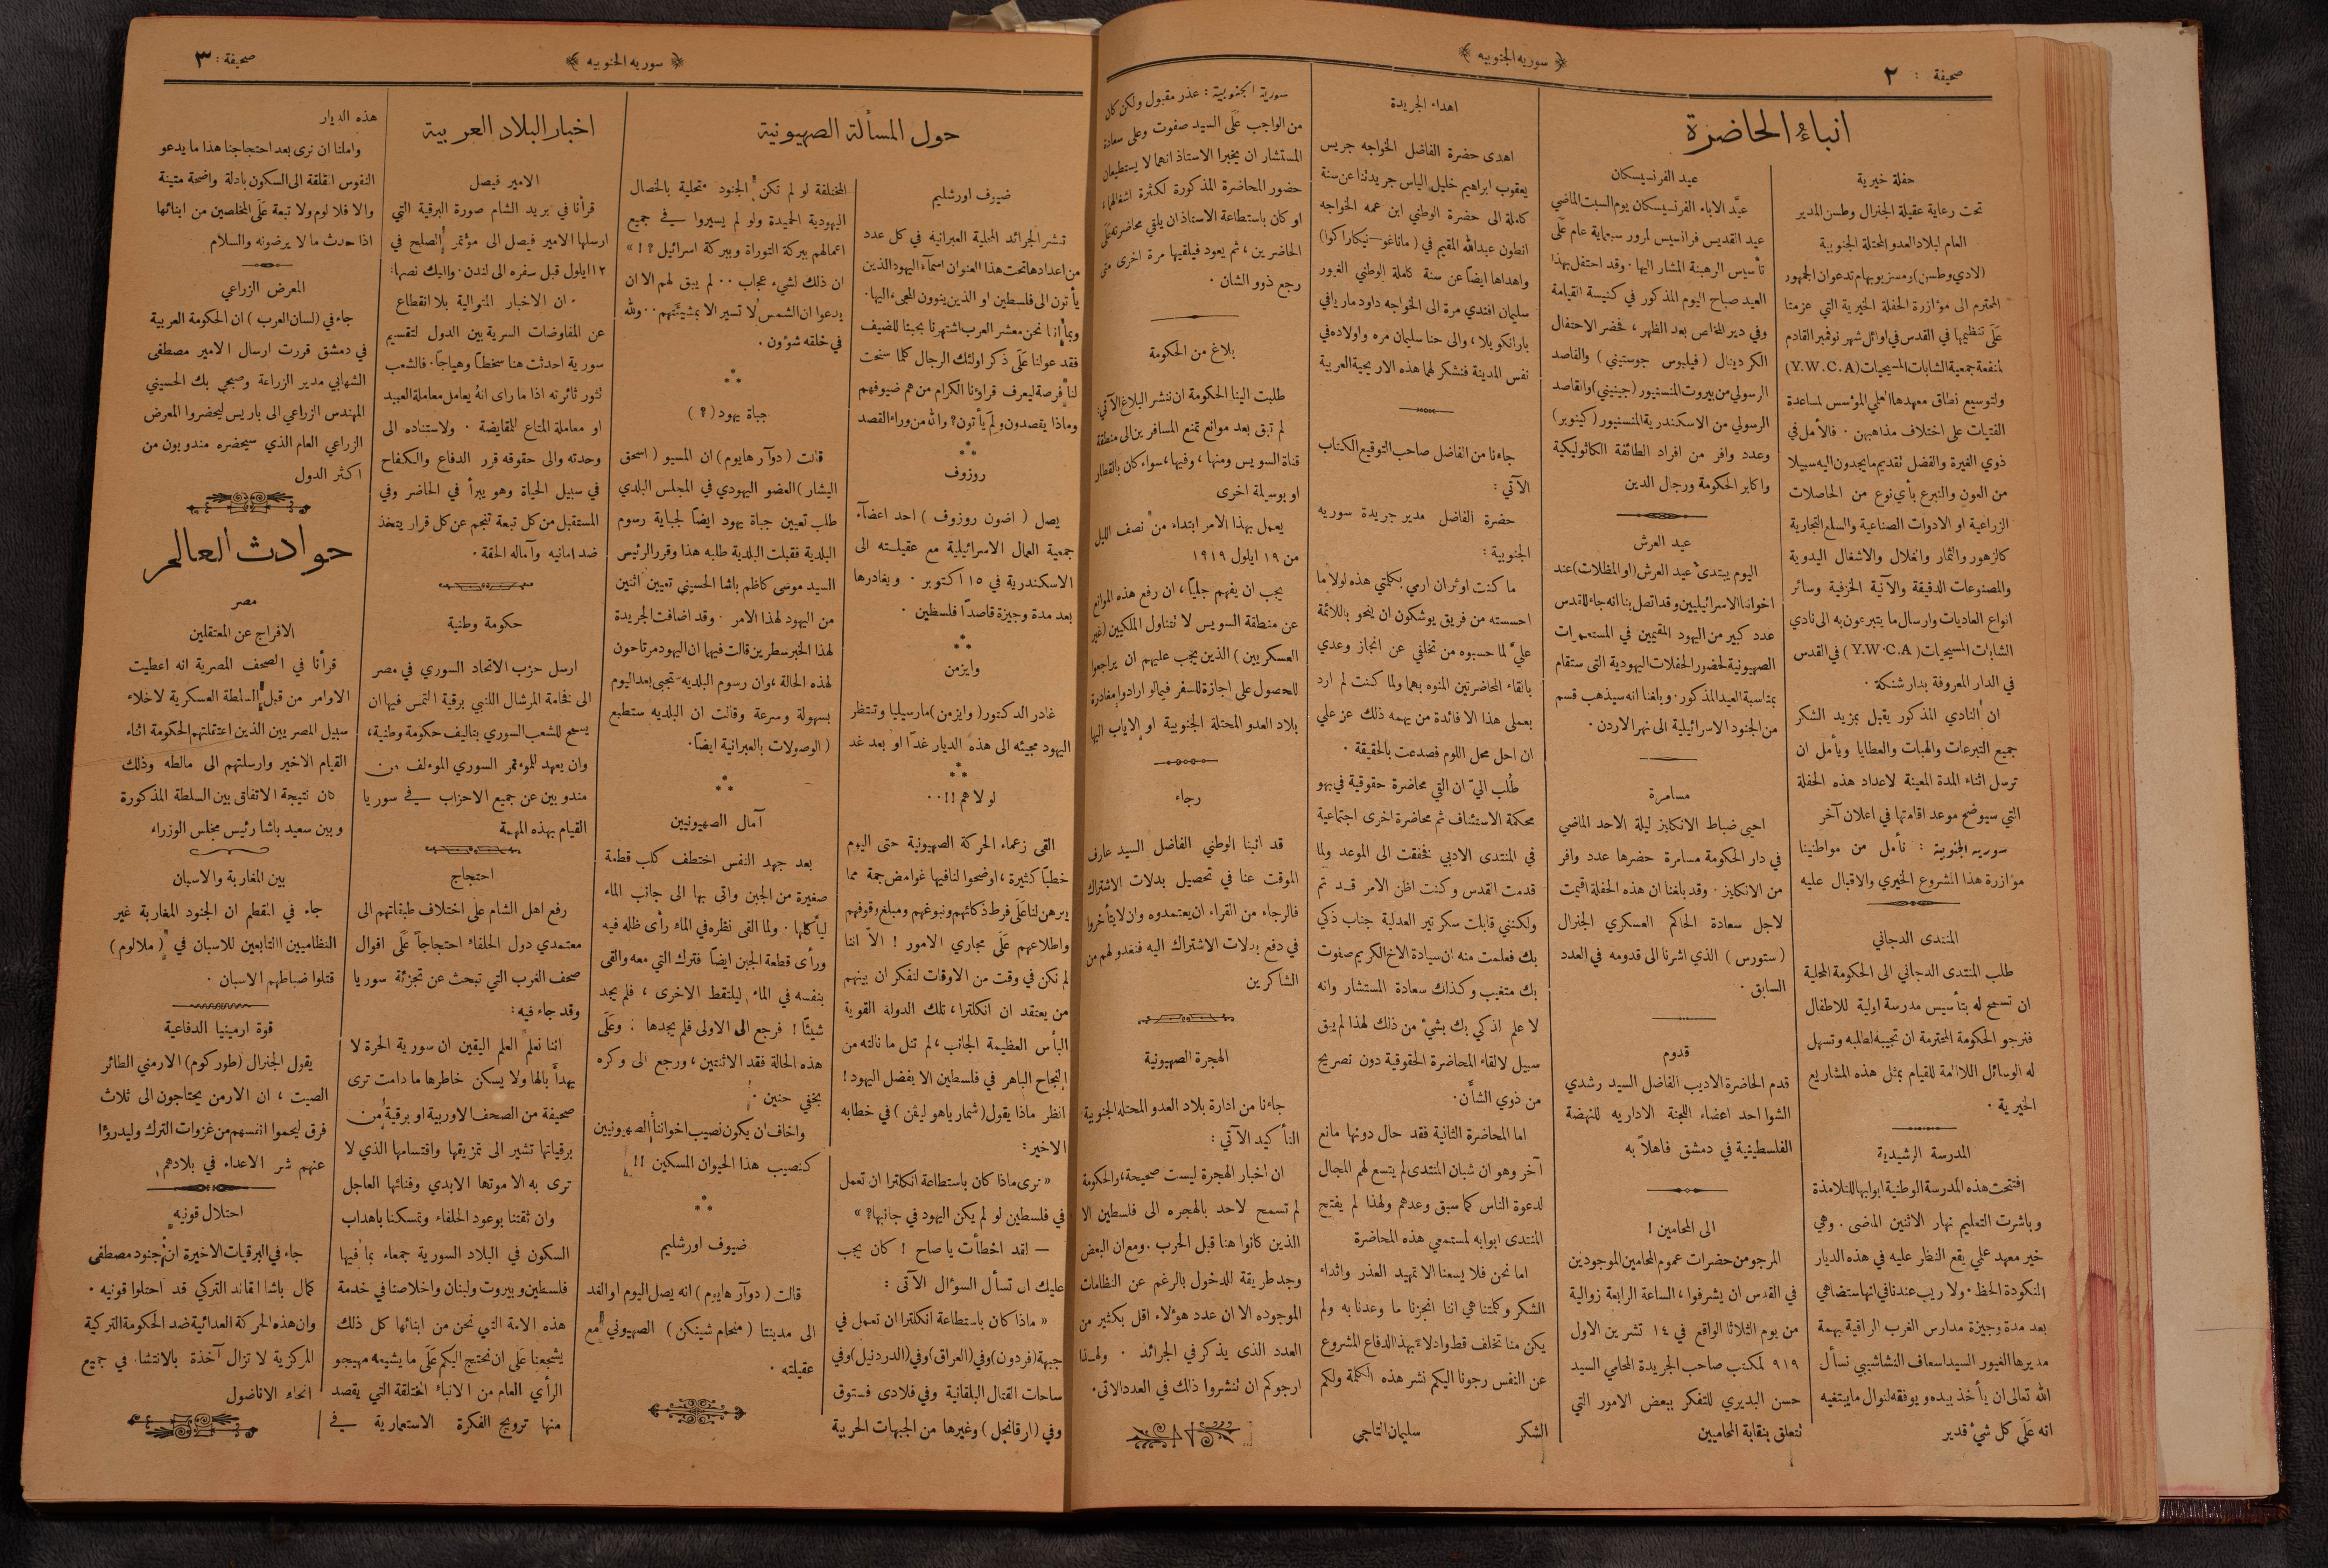 صحيفة : ٢
﴿ سوريه الجنوبيه ﴾
انباء الحاضرة
حفلة خيرية
تحت رعاية عقيلة الجنرال وطسن المدير
العام لبلاد العدو المحتلة الجنوبية
(لادي وطسن) ومسز بويهام تدعوان الجمهور
المحترم الى مؤازرة الحفلة الخيرية التي عزمتا
عَلَى تنظيمها في القدس في اوائل شهر نوفمبر القادم
لمنفعة جمعية الشابات المسيحيات (Y.W.C.A)
ولتوسيع نطاق معهدها العلي المؤسس لمساعدة
الفتيات على اختلاف مذاهبهن . فالأمل في
ذوي الغيرة والفضل تقديم ما يجدون اليه سبيلا
من العون والتبرع بأي نوع من الحاصلات
الزراعية او الادوات الصناعية والسلع التجارية
كالزهور والثمار والغلال والاشغال اليدوية
والمصنوعات الدقيقة والآنية الخزفية وسائر
انواع العاديات وارسال ما يتبرعون به الى نادي
الشابات المسيحيات (Y.W.C.A) في القدس
في الدار المعروفة بدار شنكة .
ان النادي المذكور يقبل بمزيد الشكر
جميع التبرعات والهبات والعطايا ويأمل ان
ترسل اثناء المدة المعينة لاعداد هذه الحفلة
التي سيوضح موعد اقامتها في اعلان آخر
سوريه الجنوبية : نأمل من مواطنينا
مؤازرة هذا المشروع الخيري والاقبال عليه
المنتدى الدجاني
طلب المنتدى الدجاني الى الحكومة المحلية
ان تسمح له بتأسيس مدرسة اولية للاطفال
فنرجو الحكومة المحترمة ان تجيبه لطلبه وتسهل
له الوسائل اللازمة للقيام بمثل هذه المشاريع
الخيرية .
المدرسة الرشيدية
افتتحت هذه المدرسة الوطنية ابوابها للتلامذة
وباشرت التعليم نهار الاثنين الماضي . وهي
خير معهد علمي يقع النظار عليه في هذه الديار
المنكودة الحظ . ولا ريب عندنا في انها ستضاهي
بعد مدة وجيزة مدارس الغرب الراقية بهمة
مديرها الغيور السيد اسعاف النشاشيبي نسأل
الله تعالى ان يأخذ بيده ويوفقه لنوال ما يبتغيه
انه عَلَى كل شيء قدير
عيد الفرنسيسكان
عيَّد الاباء الفرنسيسكان يوم السبت الماضي
عيد القديس فرانسيس لمرور سبعماية عام عَلَى
تأسيس الرهبنة المشار اليها . وقد احتفل بهذا
العيد صباح اليوم المذكور في كنيسة القيامة
وفي دير المخلص بعد الظهر ، فحضر الاحتفال
الكردينال (فيليوس جوستيني) والقاصد
الرسولي من بيروت المنسنيور (جينيني) والقاصد
الرسولي من الاسكندرية المنسنيور (كينوبر)
وعدد وافر من افراد الطائفة الكاثوليكية
واكابر الحكومة ورجال الدين
عيد العرش
اليوم يبتدئ عيد العرش (او المظلات) عند
اخواننا الاسرائيليين وقد اتصل بنا انه جاء للقدس
عدد كبير من اليهود المقيمين في المستعمرات
الصهيونية لحضور الحفلات اليهودية التي ستقام
بمناسبة العيد المذكور . وبلغنا انه سيذهب قسم
من الجنود الاسرائيلية الى نهر الاردن .
مسامرة
احيى ضباط الانكليز ليلة الاحد الماضي
في دار الحكومة مسامرة حضرها عدد وافر
من الانكليز . وقد بلغنا ان هذه الحفلة اقيمت
لاجل سعادة الحاكم العسكري الجنرال
(ستورس) الذي اشرنا الى قدومه في العدد
السابق .
قدوم
قدم الحاضرة الاديب الفاضل السيد رشدي
الشوا احد اعضاء اللجنة الاداريه للنهضة
الفلسطينية في دمشق فاهلاً به
الى المحامين !
المرجو من حضرات عموم المحامين الموجودين
في القدس ان يشرفوا ، الساعة الرابعة زوالية
من يوم الثلاثا الواقع في ١٤ تشرين الاول
٩١٩ لمكتب صاحب الجريدة المحامي السيد
حسن البديري للتفكر ببعض الامور التي
تتعلق بنقابة المحاميين
اهداء الجريدة
اهدى حضرة الفاضل الخواجه جريس
يعقوب ابراهيم خليل الياس جريدتنا عن سنة
كاملة الى حضرة الوطني ابن عمه الخواجه
انطون عبدالله المقيم في (ماناغو—نيكاراكوا)
واهداها ايضاً عن سنة كاملة الوطني الغيور
سليمان افندي مرة الى الخواجه داود مار يافي
بارانكويلا ، والى حنا سليمان مره واولاده في
نفس المدينة فنشكر لهما هذه الاريحية العربية
جاءنا من الفاضل صاحب التوقيع الكتاب
الآتي :
حضرة الفاضل مدير جريدة سوريه
الجنوبية :
ما كنت اوثر ان ارمي بكلمتي هذه لولا ما
احسسته من فريق يوشكون ان ينحو باللائمة
عليَّ لما حسبوه من تخلفي عن انجاز وعدي
بالقاء المحاضرتين المنوه بهما ولما كنت لم ارد
بعملي هذا الا فائدة من يهمه ذلك عز علي
ان احل محل اللوم فصدعت بالحقيقة .
طُلب اليّ ان القي محاضرة حقوقية في بهو
محكمة الاستئناف ثم محاضرة اخرى اجتماعية
في المنتدى الادبي فخفقت الى الموعد ولما
قدمت القدس وكنت اظن الامر قد تم
ولكنني قابلت سكرتير العدلية جناب ذكي
بك فعلمت منه ان سيادة الاخ الكريم صفوت
بك متغيب وكذلك سعادة المستشار وانه
لا علم لذكي بك بشيء من ذلك لهذا لم يبق
سبيل لالقاء المحاضرة الحقوقية دون تصريح
من ذوي الشأن.
اما المحاضرة الثانية فقد حال دونها مانع
آخر وهو ان شبان المنتدى لم يتسع لهم المجال
لدعوة الناس كما سبق وعدهم ولهذا لم يفتح
المنتدى ابوابه لمستمعي هذه المحاضرة
اما نحن فلا يسعنا الا تمهيد العذر واثداء
الشكر وكلمتنا هي اننا انجزنا ما وعدنا به ولم
يكن منا تخلف قط وادلاءً بهذا الدفاع المشروع
عن النفس رجونا اليكم نشر هذه الكلمة ولكم
الشكر سليمان التاجي
سورية الجنوبية : عذر مقبول ولكن كان
من الواجب عَلَى السيد صفوت وعلى سعادة
المستشار ان يخبرا الاستاذ انهما لا يستطيعان
حضور المحاضرة المذكورة لكثرة اشغالهما ،
او كان باستطاعة الاستاذ ان يلقي محاضرته عَلَى
الحاضرين ، ثم يعود فيلقيها مرة اخرى متى
رجع ذوو الشان .
بلاغ من الحكومة
طلبت الينا الحكومة ان ننشر البلاغ الآتي:
لم تبق بعد موانع تمنع المسافرين الى منطقة
قناة السويس ومنها ، وفيها ، سواء كان بالقطار
او بوسيلة اخرى
يعمل بهذا الامر ابتداء من نصف الليل
من ١٩ ايلول ١٩١٩
يجب ان يفهم جليًّا ، ان رفع هذه الموانع
عن منطقة السويس لا تتناول الملكيين (غير
العسكريين) الذين يجب عليهم ان يراجعوا
للحصول على اجازة للسفر فيما لو ارادوا مغادرة
بلاد العدو المحتلة الجنوبية او الاياب اليها
رجاء
قد انبنا الوطني الفاضل السيد عارف
الموقت عنا في تحصيل بدلات الاشتراك
فالرجاء من القراء ان يعتمدوه وان لا يتأخروا
في دفع بدلات الاشتراك اليه فنغدو لهم من
الشاكرين
الهجرة الصهيونية
جاءنا من ادارة بلاد العدو المحتله الجنوبية
التأكيد الآتي :
ان اخبار الهجرة ليست صحيحة ، والحكومة
لم تسمح لاحد بالهجره الى فلسطين الا
الذين كانوا هنا قبل الحرب . ومع ان البعض
وجد طريقة للدخول بالرغم عن النظامات
الموجوده الا ان عدد هؤلاء اقل بكثير من
العدد الذى يذكر في الجرائد . ولهذا
ارجوكم ان تنشروا ذلك في العدد الاتي .
﴿ سوريه الجنوبيه ﴾
صحيفة : ٣
حول المسألة الصهيونية
ضيوف اورشليم
تنشر الجرائد المحلية العبرانية في كل عدد
من اعدادها تحت هذا العنوان اسمآء اليهود الذين
يأتون الى فلسطين او الذين ينوون المجيء اليها .
وبما اننا نحن معشر العرب اشتهرنا بحبنا للضيف
فقد عولنا عَلَى ذكر اولئك الرجال كلما سنحت
لنا فرصة ليعرف قراؤنا الكرام من هم ضيوفهم
وماذا يقصدون ولِمَ يأتون؟ والله من وراء القصد
روزوف
يصل (اضون روزوف) احد اعضاء
جمعية العمال الاسرائيلية مع عقيلته الى
الاسكندرية في ١٥ اكتوبر . ويغادرها
بعد مدة وجيزة قاصداً فلسطين .
وايزمن
غادر الدكتور (وايزمن) مارسيليا وتنتظر
اليهود مجيئه الى هذه الديار غداً او بعد غد
لولاهم !! ..
القى زعماء الحركة الصهيونية حتى اليوم
خطباً كثيرة ، اوضحوا لنا فيها غوامض جمة مما
يبرهن لنا عَلَى فرط ذكائهم ونبوغهم ومبلغ وقوفهم
واطلاعهم عَلَى مجاري الامور ! الاّ اننا
لم نكن في وقت من الاوقات لنفكر ان بينهم
من يعتقد ان انكلترا ، تلك الدولة القوية
البأس العظيمة الجانب ، لم تنل ما نالته من
النجاح الباهر في فلسطين الا بفضل اليهود !
انظر ماذا يقول (شمارياهو ليفن) في خطابه
الاخير:
« ترى ماذا كان باستطاعة انكلترا ان تعمل
في فلسطين لو لم يكن اليهود في جانبها ؟ »
— لقد اخطأت يا صاح ! كان يجب
عليك ان تسأل السؤال الآتى :
« ماذا كان باستطاعة انكلترا ان تعمل في
جبهة (فردون) وفي (العراق) وفي (الدردنيل) وفي
ساحات القتال البلقانية وفي فلادى فستوق
وفي (ارقانجل) وغيرها من الجبهات الحربية
المختلفة لو لم تكن الجنود متحلية بالخصال
اليهودية الحميدة ولو لم يسيروا في جميع
اعمالهم ببركة التوراة وببركة اسرائيل ؟ ! »
ان ذلك لشيء عجاب .. لم يبق لهم الا ان
يدعوا ان الشمس لا تسير الا بمشيئتهم .. ولله
في خلقه شؤون .
جباة يهود (؟)
قالت (دوآر هايوم) ان المسيو (اسحق
اليشار) العضو اليهودي في المجلس البلدي
طلب تعيين جباة يهود ايضاً لجباية رسوم
البلدية فقبلت البلدية طلبه هذا وقرر الرئيس
السيد موسى كاظم باشا الحسيني تعيين اثنين
من اليهود لهذا الامر . وقد اضافت الجريدة
لهذا الخبر سطرين قالت فيهما ان اليهود مرتاحون
لهذه الحالة ، وان رسوم البلديه ستجبى بعد اليوم
بسهولة وسرعة وقالت ان البلديه ستطبع
(الوصولات بالعبرانية ايضاً .
آمال الصهيونيين
بعد جهد النفس اختطف كلب قطعة
صغيرة من الجبن واتى بها الى جانب الماء
ليأكلها . ولما القى نظره في الماء رأى ظله فيه
ورأى قطعة الجبن ايضاً فترك التي معه والقى
بنفسه في الماء ليلتقط الاخرى ، فلم يجد
شيئًا ! فرجع الى الاولى فلم يجدها : وعَلَى
هذه الحالة فقد الاثنتين ، ورجع الى وكره
بخفي حنين .
واخاف ان يكون نصيب اخواننا الصهيونيين
كنصيب هذا الحيوان المسكين !!
ضيوف اورشليم
قالت (دوآر هايوم) انه يصل اليوم او الغد
الى مدينتا (منحام شينكن) الصهيوني مع
عقيلته .
اخبار البلاد العربية
الامير فيصل
قرأنا في بريد الشام صورة البرقية التي
ارسلها الامير فيصل الى مؤتمر الصلح في
١٢ ايلول قبل سفره الى لندن . واليك نصها:
« ان الاخبار المتوالية بلا انقطاع
عن المفاوضات السرية بين الدول لتقسيم
سورية احدثت هنا سخطاً وهياجاً . فالشعب
تثور ثائرته اذا ما راى انهُ يعامل معاملة العبيد
او معاملة المتاع للمقايضة . ولاستناده الى
وحدته والى حقوقه قرر الدفاع والكفاح
في سبيل الحياة وهو يبرأ في الحاضر وفي
المستقبل من كل تبعة تنجم عن كل قرار يتخذ
ضد امانيه وآماله الحقة .
حكومة وطنية
ارسل حزب الاتحاد السوري في مصر
الى فخامة المرشال اللنبي برقية التمس فيها ان
يسمح للشعب السوري بتاليف حكومة وطنية ،
وان يعهد للموءتمر السوري الموءلف من
مندوبين عن جميع الاحزاب في سوريا
القيام بهذه المهمة
احتجاج
رفع اهل الشام على اختلاف طبقاتهم الى
معتمدي دول الحلفاء احتجاجاً عَلَى اقوال
صحف الغرب التي تبحث عن تجزئة سوريا
وقد جاء فيه:
اننا نعلم العلم اليقين ان سورية الحرة لا
يهدأ بالها ولا يسكن خاطرها ما دامت ترى
صحيفة من الصحف الاوربية او برقية من
برقياتها تشير الى تمزيقها واقتسامها الذي لا
ترى به الا موتها الابدي وفنائها العاجل
وان ثقتنا بوعود الحلفاء وتمسكنا باهداب
السكون في البلاد السورية جمعاء بما فيها
فلسطين وبيروت ولبنان واخلاصنا في خدمة
هذه الامة التي نحن من ابنائها كل ذلك
يشجعنا عَلَى ان نحتج اليكم عَلَى ما يشيعه مهيجو
الرأي العام من الانباء المختلقة التي يقصد
منها ترويج الفكرة الاستعمارية في
هذه الديار
واملنا ان نرى بعد احتجاجنا هذا ما يدعو
النفوس القلقة الى السكون بادلة واضحة متينة
والا فلا لوم ولا تبعة عَلَى المخلصين من ابنائها
اذا حدث ما لا يرضونه والسلام
المعرض الزراعي
جاء في (لسان العرب) ان الحكومة العربية
في دمشق قررت ارسال الامير مصطفى
الشهابي مدير الزراعة وصبحي بك الحسيني
المهندس الزراعي الى باريس ليحضروا المعرض
الزراعي العام الذي سيحضره مندوبون من
اكثر الدول
حوادث العالم
مصر
الافراج عن المعتقلين
قرأنا في الصحف المصرية انه اعطيت
الاوامر من قبل السلطة العسكرية لاخلاء
سبيل المصريين الذين اعتقلتهم الحكومة اثناء
القيام الاخير وارسلتهم الى مالطه وذلك
كان نتيجة الاتفاق بين السلطة المذكورة
وبين سعيد باشا رئيس مجلس الوزراء
بين المغاربة والاسبان
جاء في المقطم ان الجنود المغاربة غير
النظاميين التابعين للاسبان في (ملالوم)
قتلوا ضباطهم الاسبان .
قوة ارمينيا الدفاعية
يقول الجنرال (طوركوم) الارمني الطائر
الصيت ، ان الارمن يحتاجون الى ثلاث
فرق ليحموا انفسهم من غزوات الترك وليدرؤا
عنهم شر الاعداء في بلادهم .
احتلال قونيه
جاء في البرقيات الاخيرة ان جنود مصطفى
كمال باشا القائد التركي قد احتلوا قونيه .
وان هذه الحركة العدائية ضد الحكومة التركية
المركزية لا تزال آخذة بالانتشار في جميع
انحاء الاناضول